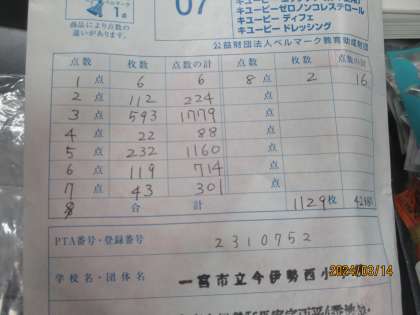 ベルマーク
1点
商品により点数の
違いがあります。
07
キユーピーゼロノンコレステロール
キユーピー ディフェ
キユーピー ドレッシング
公益財団法人ベルマーク教育助成財団
点数 枚数 点数の計 点数 枚数 点数の計
1 点 6 6 8 点 2 16
2 点 112 224 点
3 点 593 1779 点
4 点 22 88 点
5 点 232 1160 点
6 点 119 714 点
7 点 43 301 点
8 合 計 1129枚
PTA番号・登録番号 2310752
2024/03/14
学校名・団体名 一宮市立今伊勢西小